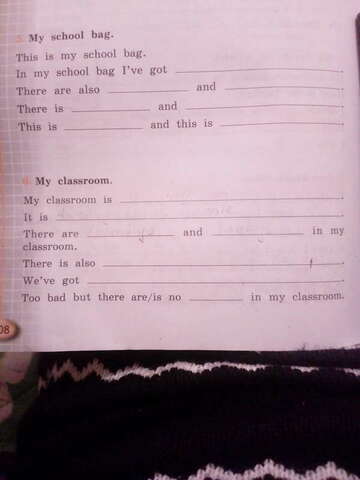 5. My school bag.
This is my school bag.
In my school bag I've got ______.
There are also ______ and ______.
There is ______ and ______.
This is ______ and this is ______.
6. My classroom.
My classroom is ______.
It is ______.
There are ______ and ______ in my
classroom.
There is also ______.
We've got ______.
Too bad but there are/is no ______ in my classroom.
08